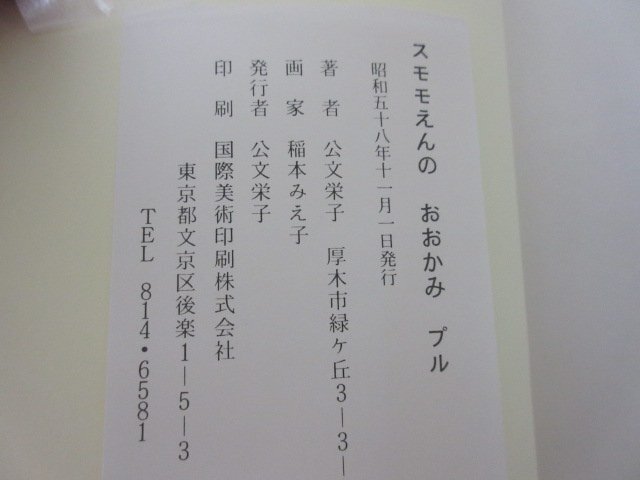 スモモえんの おおかみ プル
昭和五十八年十一月一日発行
著者 公文栄子 厚木市緑ヶ丘3―3―
画家 稲本みえ子
発行者 公文栄子
印刷 国際美術印刷株式会社
東京都文京区後楽1―5―3
TEL 814・6581